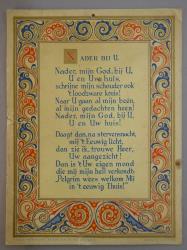 NADER BIJ U.
Nader, mijn God, bij U,
U en Uw huis,
schrijne mijn schouder ook
't loodzware kruis!
Naar U gaan al mijn beên,
al mijn gedachten heen!
Nader, mijn God, bij U,
U en Uw huis!
Daagt dan, na stervensnacht,
mij 't Eeuwig licht,
dan zie ik, trouwe Heer,
Uw aangezicht!
Dan is 't Uw eigen mond
die mij mijn heil verkondt:
Pelgrim wees welkom Mij
in 't eeuwig Thuis!